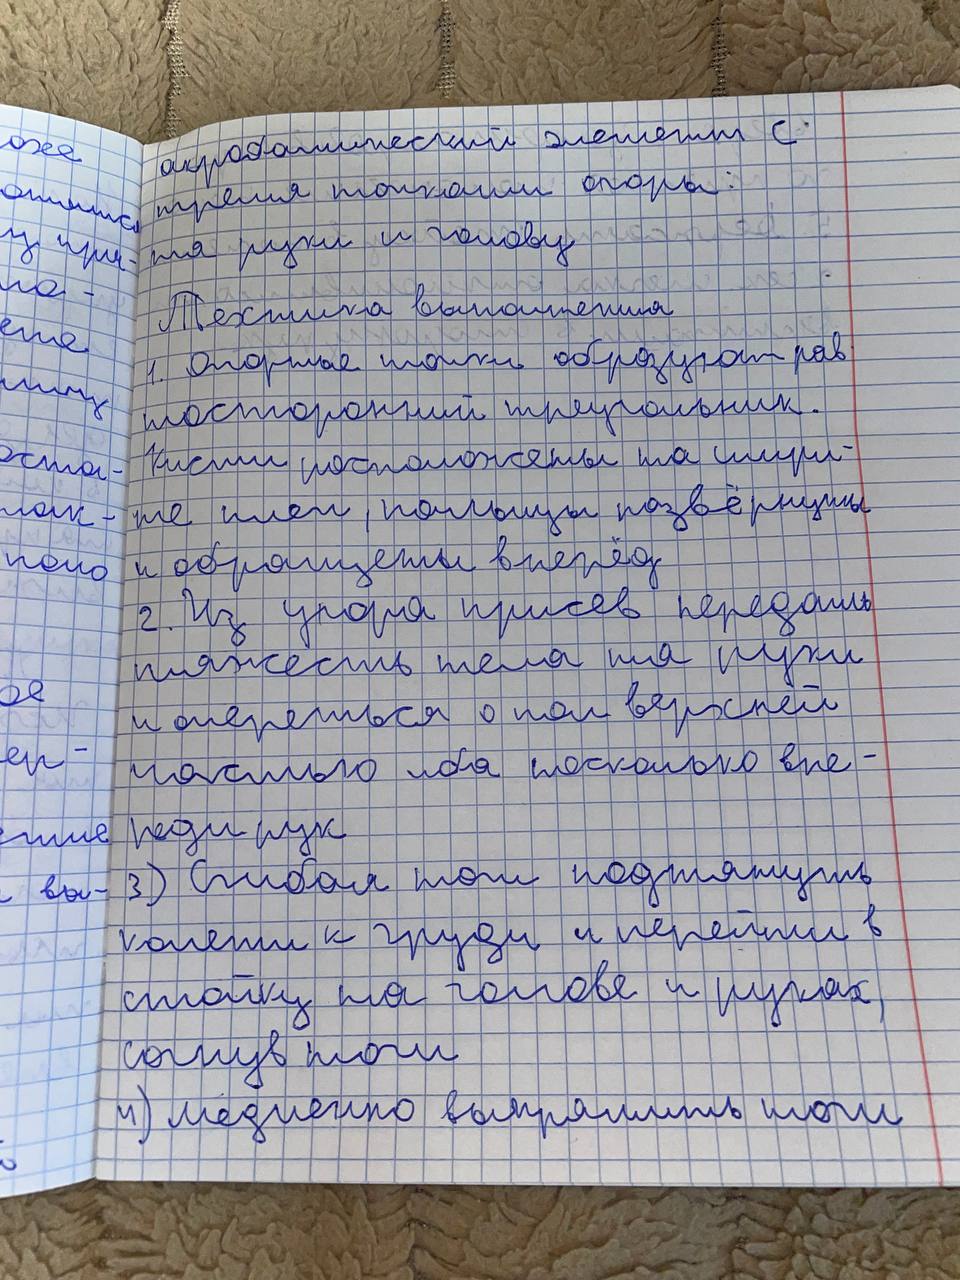 акробатический элемент с
тремя точками опоры:
на руки и голову
Техника выполнения
1. Опорные точки образуют рав
носторонний треугольник.
Кисти расположены на шири-
не плеч, пальцы развёрнуты
и обращены вперёд
2. Из упора присев передать
тяжесть тела на руки
и опереться о пол верхней
частью лба несколько впе-
реди рук
3) Сгибая ноги подтянуть
колени к груди и перейти в
стойку на голове и руках,
согнув ноги
4) Медленно выпрямить ноги